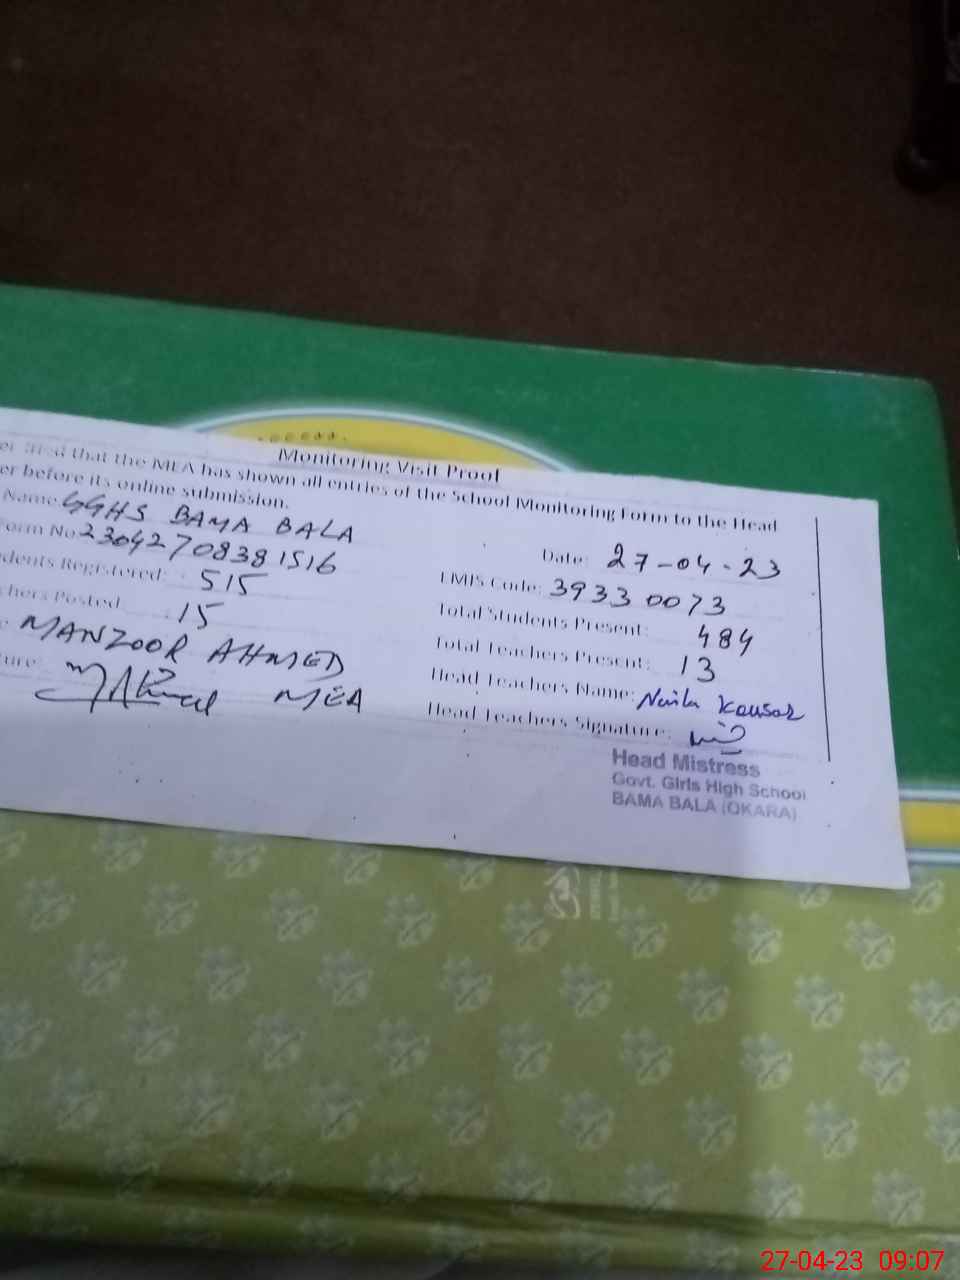 Monitoring Visit Proof
that the MEA has shown all entries of the School Monitoring Form to the Head
er before its online submission.
Name GGHS BAMA BALA
Date: 27-04-23
Form No 23042708381516
EMIS Code: 39330073
dents Registered: 515
Total Students Present: 484
chers Posted 15
Total Teachers Present: 13
MANZOOR AHMED
Head Teachers Name: Naila Kousar
ture: MEA
Head Teachers Signature:
Head Mistress
Govt. Girls High School
BAMA BALA (OKARA)
27-04-23 09:07